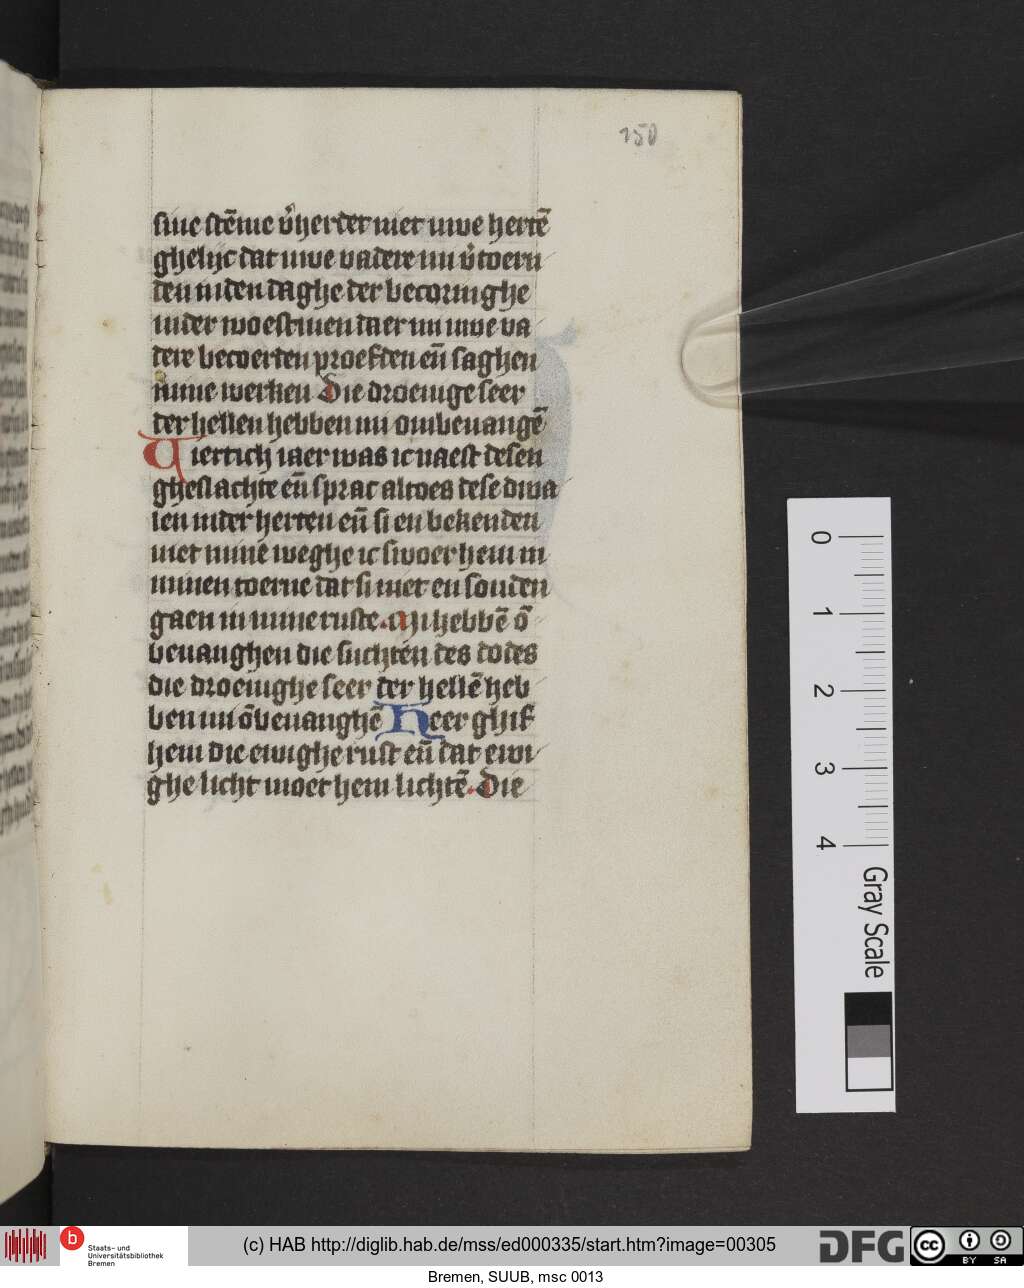 150
sine stēme v̓herdet niet uwe hertē
ghelijc dat uwe vadere mi v̓toern
den inden daghe der becoringhe
inder woestinen daer mi uwe va
dere becoerten proefden eñ saghen
mine werken Die droeuige seer
der hellen hebben mi ombeuangē
Viertich iaer was ic naest desen
gheslachte eñ sprac altoes dese dwa
len inder herten eñ si en bekenden
niet minē weghe ic swoer hem in
minen toerne dat si niet en souden
gaen in mine ruste. Mi hebbē ō
beuanghen die suchten des dodes
die droeuighe seer der hellē heb
ben mi ōbeuanghē Heer ghif
hem die ewighe rust eñ dat ewi
ghe licht moet hem lichtē. Die
0
1
2
3
4
Gray Scale
b Staats- und
Universitätsbibliothek
Bremen
(c) HAB http://diglib.hab.de/mss/ed000335/start.htm?image=00305
DFG
cc BY SA
Bremen, SUUB, msc 0013